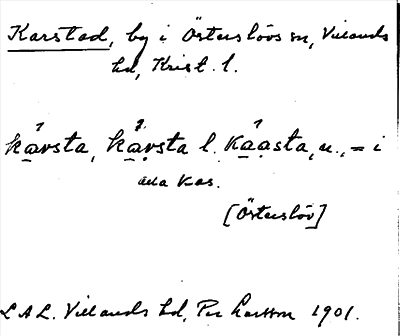 Karstad, by i Österslövs sn, Villands
hd, Krist. l.
kạrsta, kạ̄rsta l. kaạsta, u., = i
alla kas.
[Österslöv]
L.A.L. Villands hd, Per Larsson 1901.